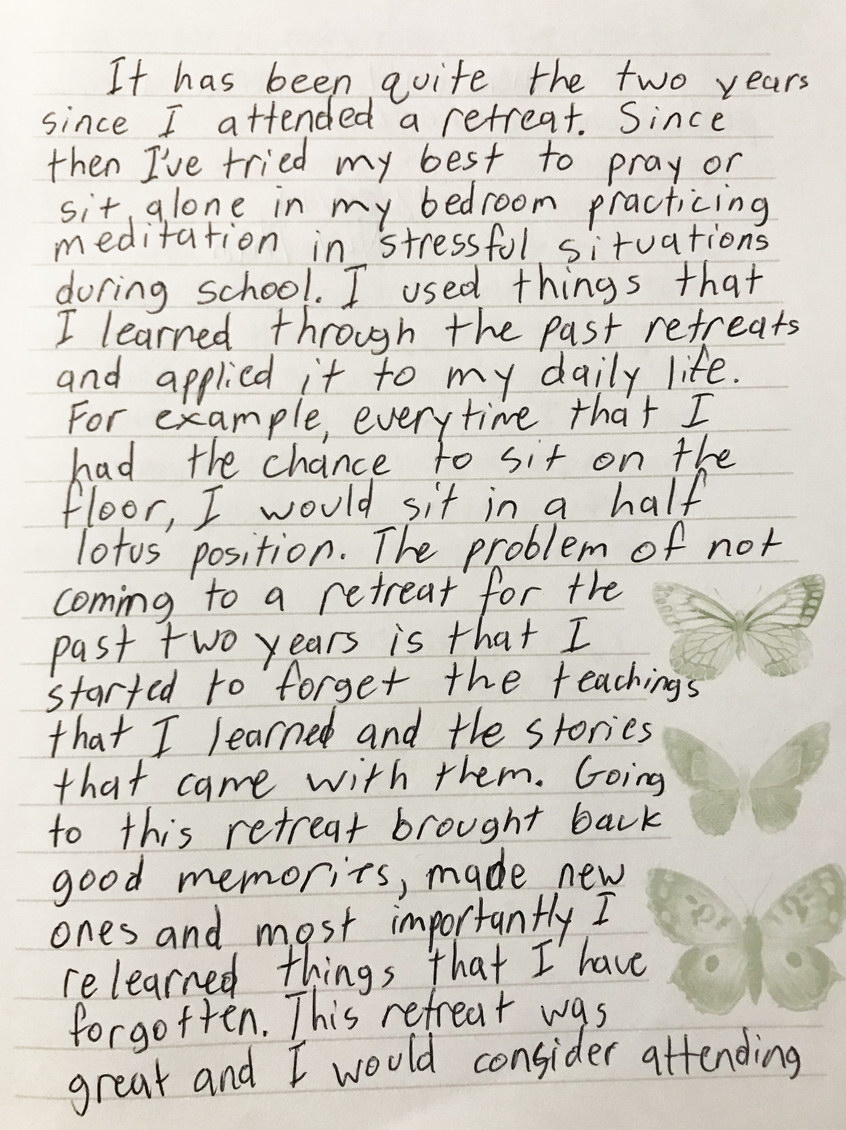 It has been quite the two years
since I attended a retreat. Since
then I've tried my best to pray or
sit alone in my bedroom practicing
meditation in stressful situations
during school. I used things that
I learned through the past retreats
and applied it to my daily life.
For example, everytime that I
had the chance to sit on the
floor, I would sit in a half
lotus position. The problem of not
coming to a retreat for the
past two years is that I
started to forget the teachings
that I learned and the stories
that came with them. Going
to this retreat brought back
good memories, made new
ones and most importantly I
relearned things that I have
forgotten. This retreat was
great and I would consider attending